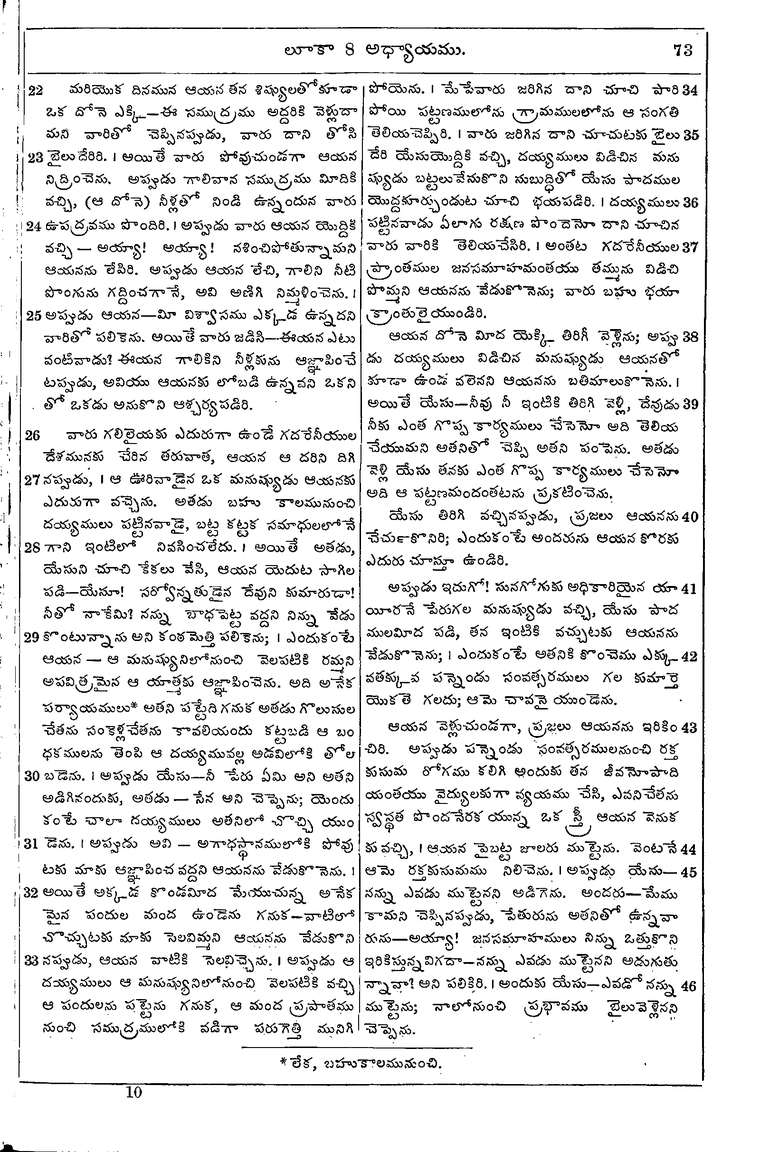 లూకా 8 అధ్యాయము. 73
22 మరియొక దినమున ఆయన తన శిష్యులతోకూడా
ఒక దోనె ఎక్కి—ఈ సముద్రము అద్దరికి వెళ్లుదా
మని వారితో చెప్పినప్పుడు, వారు దాని తోసి
23 బైలుదేరిరి. । అయితే వారు పోవుచుండగా ఆయన
నిద్రించెను. అప్పుడు గాలివాన సముద్రము మీదికి
వచ్చి, (ఆ దోనె) నీళ్లతో నిండి ఉన్నందున వారు
24 ఉపద్రవము పొందిరి. । అప్పుడు వారు ఆయన యొద్దికి
వచ్చి — అయ్యా! అయ్యా! నశించిపోతున్నామని
ఆయనను లేపిరి. అప్పుడు ఆయన లేచి, గాలిని నీటి
పొంగును గద్దించగానే, అవి అణిగి నిమ్మళించెను. ।
25 అప్పుడు ఆయన—మీ విశ్వాసము ఎక్కడ ఉన్నదని
వారితో పలికెను. అయితే వారు జడిసి—ఈయన ఎటు
వంటివాడు? ఈయన గాలికిని నీళ్లకును ఆజ్ఞాపించే
టప్పుడు, అవియు ఆయనకు లోబడి ఉన్నవని ఒకని
తో ఒకడు అనుకొని ఆశ్చర్యపడిరి.
26 వారు గలిలైయకు ఎదురుగా ఉండే గదరేనీయుల
దేశమునకు చేరిన తరువాత, ఆయన ఆ దరిని దిగి
27 నప్పుడు, । ఆ ఊరివాడైన ఒక మనుష్యుడు ఆయనకు
ఎదురుగా వచ్చెను. అతడు బహు కాలమునుంచి
దయ్యములు పట్టినవాడై, బట్ట కట్టక సమాధులలోనే
28 గాని ఇంటిలో నివసించలేదు. । అయితే అతడు,
యేసుని చూచి కేకలు వేసి, ఆయన యెదుట సాగిల
పడి—యేసూ! సర్వోన్నతుడైన దేవుని కుమారుడా!
నీతో నాకేమి? నన్ను బాధపెట్ట వద్దని నిన్ను వేడు
29 కొంటున్నాను అని కంఠమెత్తి పలికెను; । ఎందుకంటే
ఆయన — ఆ మనుష్యునిలోనుంచి వెలపటికి రమ్మని
అపవిత్రమైన ఆ యాత్మకు ఆజ్ఞాపించెను. అది అనేక
పర్యాయములు* అతని పట్టేది గనుక అతడు గొలుసుల
చేతను సంకెళ్లచేతను కావలియందు కట్టబడి ఆ బం
ధకములను తెంపి ఆ దయ్యమువల్ల అడవిలోకి తోల
30 బడెను. । అప్పుడు యేసు—నీ పేరు ఏమి అని అతని
అడిగినందుకు, అతడు — సేన అని చెప్పెను; యెందు
కంటే చాలా దయ్యములు అతనిలో చొచ్చి యుం
31 డెను. । అప్పుడు అవి — అగాధస్థానములోకి పోవు
టకు మాకు ఆజ్ఞాపించ వద్దని ఆయనను వేడుకొనెను. ।
32 అయితే అక్కడ కొండమీద మేయుచున్న అనేక
మైన పందుల మంద ఉండెను గనుక—వాటిలో
చొచ్చుటకు మాకు సెలవిమ్మని ఆయనను వేడుకొని
33 నప్పుడు, ఆయన వాటికి సెలవిచ్చెను. । అప్పుడు ఆ
దయ్యములు ఆ మనుష్యునిలోనుంచి వెలపటికి వచ్చి
ఆ పందులను పట్టెను గనుక, ఆ మంద ప్రపాతము
నుంచి సముద్రములోకి వడిగా పరుగెత్తి మునిగి
పోయెను. । మేపేవారు జరిగిన దాని చూచి పారి 34
పోయి పట్టణములోను గ్రామములలోను ఆ సంగతి
తెలియచెప్పిరి. । వారు జరిగిన దాని చూచుటకు బైలు 35
దేరి యేసుయొద్దికి వచ్చి, దయ్యములు విడిచిన మను
ష్యుడు బట్టలువేసుకొని సుబుద్ధితో యేసు పాదముల
యొద్దకూర్చుండుట చూచి భయపడిరి. । దయ్యములు 36
పట్టినవాడు ఏలాగు రక్షణ పొందెనో దాని చూచిన
వారు వారికి తెలియచేసిరి. । అంతట గదరేనీయుల 37
ప్రాంతముల జనసమూహమంతయు తమ్మును విడిచి
పొమ్మని ఆయనను వేడుకొనెను; వారు బహు భయా
క్రాంతులైయుండిరి.
ఆయన దోనె మీద యెక్కి తిరిగీ వెళ్లెను; అప్పు 38
డు దయ్యములు విడిచిన మనుష్యుడు ఆయనతో
కూడా ఉండ వలెనని ఆయనను బతిమాలుకొనెను. ।
అయితే యేసు—నీవు నీ ఇంటికి తిరిగి వెళ్లి, దేవుడు 39
నీకు ఎంత గొప్ప కార్యములు చేసెనో అది తెలియ
చేయుమని అతనితో చెప్పి అతని పంపెను. అతడు
వెళ్లి యేసు తనకు ఎంత గొప్ప కార్యములు చేసెనో
అది ఆ పట్టణమందంతటను ప్రకటించెను.
యేసు తిరిగి వచ్చినప్పుడు, ప్రజలు ఆయనను 40
చేచుకొనిరి; ఎందుకంటే అందరును ఆయన కొరకు
ఎదురు చూస్తూ ఉండిరి.
అప్పుడు ఇదుగో! సునగోగుకు అధికారియైన యా 41
యీరనే పేరుగల మనుష్యుడు వచ్చి, యేసు పాద
ములమీద పడి, తన ఇంటికి వచ్చుటకు ఆయనను
వేడుకొనెను; । ఎందుకంటే అతనికి కొంచెము ఎక్కు 42
వతక్కువ పన్నెండు సంవత్సరములు గల కుమార్తె
యొకతె గలదు; ఆమె చావనై యుండెను.
ఆయన వెళ్లుచుండగా, ప్రజలు ఆయనను ఇరికిం 43
చిరి. అప్పుడు పన్నెండు సంవత్సరములనుంచి రక్త
కుసుమ రోగము కలిగి అందుకు తన జీవనోపాది
యంతయు వైద్యులకుగా వ్యయము చేసి, ఎవనిచేతను
స్వస్థత పొందనేరక యున్న ఒక స్త్రీ ఆయన వెనుక
కు వచ్చి, । ఆయన పైబట్ట జాలరు ముట్టెను. వెంటనే 44
ఆమె రక్తకుసుమము నిలిచెను. । అప్పుడు యేసు— 45
నన్ను ఎవడు ముట్టెనని అడిగెను. అందరు—మేము
కామని చెప్పినప్పుడు, పేతురును అతనితో ఉన్నవా
రును—అయ్యా! జనసమూహములు నిన్ను ఒత్తుకొని
ఇరికిస్తున్నవిగదా—నన్ను ఎవడు ముట్టెనని అడుగుతు
న్నావా? అని పలికిరి. । అందుకు యేసు—ఎవడో నన్ను 46
ముట్టెను; నాలోనుంచి ప్రభావము బైలువెళ్లెనని
చెప్పెను.
* లేక, బహుకాలమునుంచి.
10